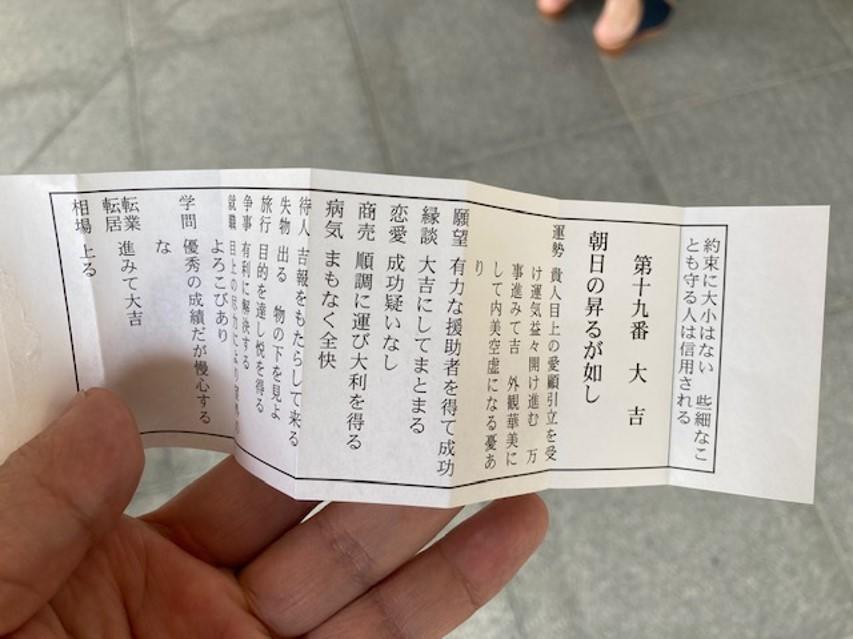 約束に大小はない 些細なこ
とも守る人は信用される
第十九番 大吉
朝日の昇るが如し
運勢 貴人目上の愛顧引立を受
け運気益々開け進む 万
事進みて吉 外観華美に
して内美空虚になる憂あ
り
願望 有力な援助者を得て成功
縁談 大吉にしてまとまる
恋愛 成功疑いなし
商売 順調に運び大利を得る
病気 まもなく全快
待人 吉報をもたらして来る
失物 出る 物の下を見よ
旅行 目的を達し悦を得る
争事 有利に解決する
就職 目上の尽力により
よろこびあり
学問 優秀の成績だが慢心する
な
転業
転居 進みて大吉
相場 上る